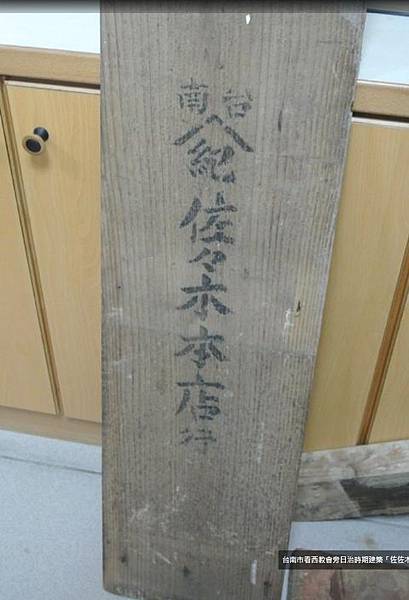 台南
紀
佐々木本店行
台南市看西教會旁日治時期建築「佐佐木